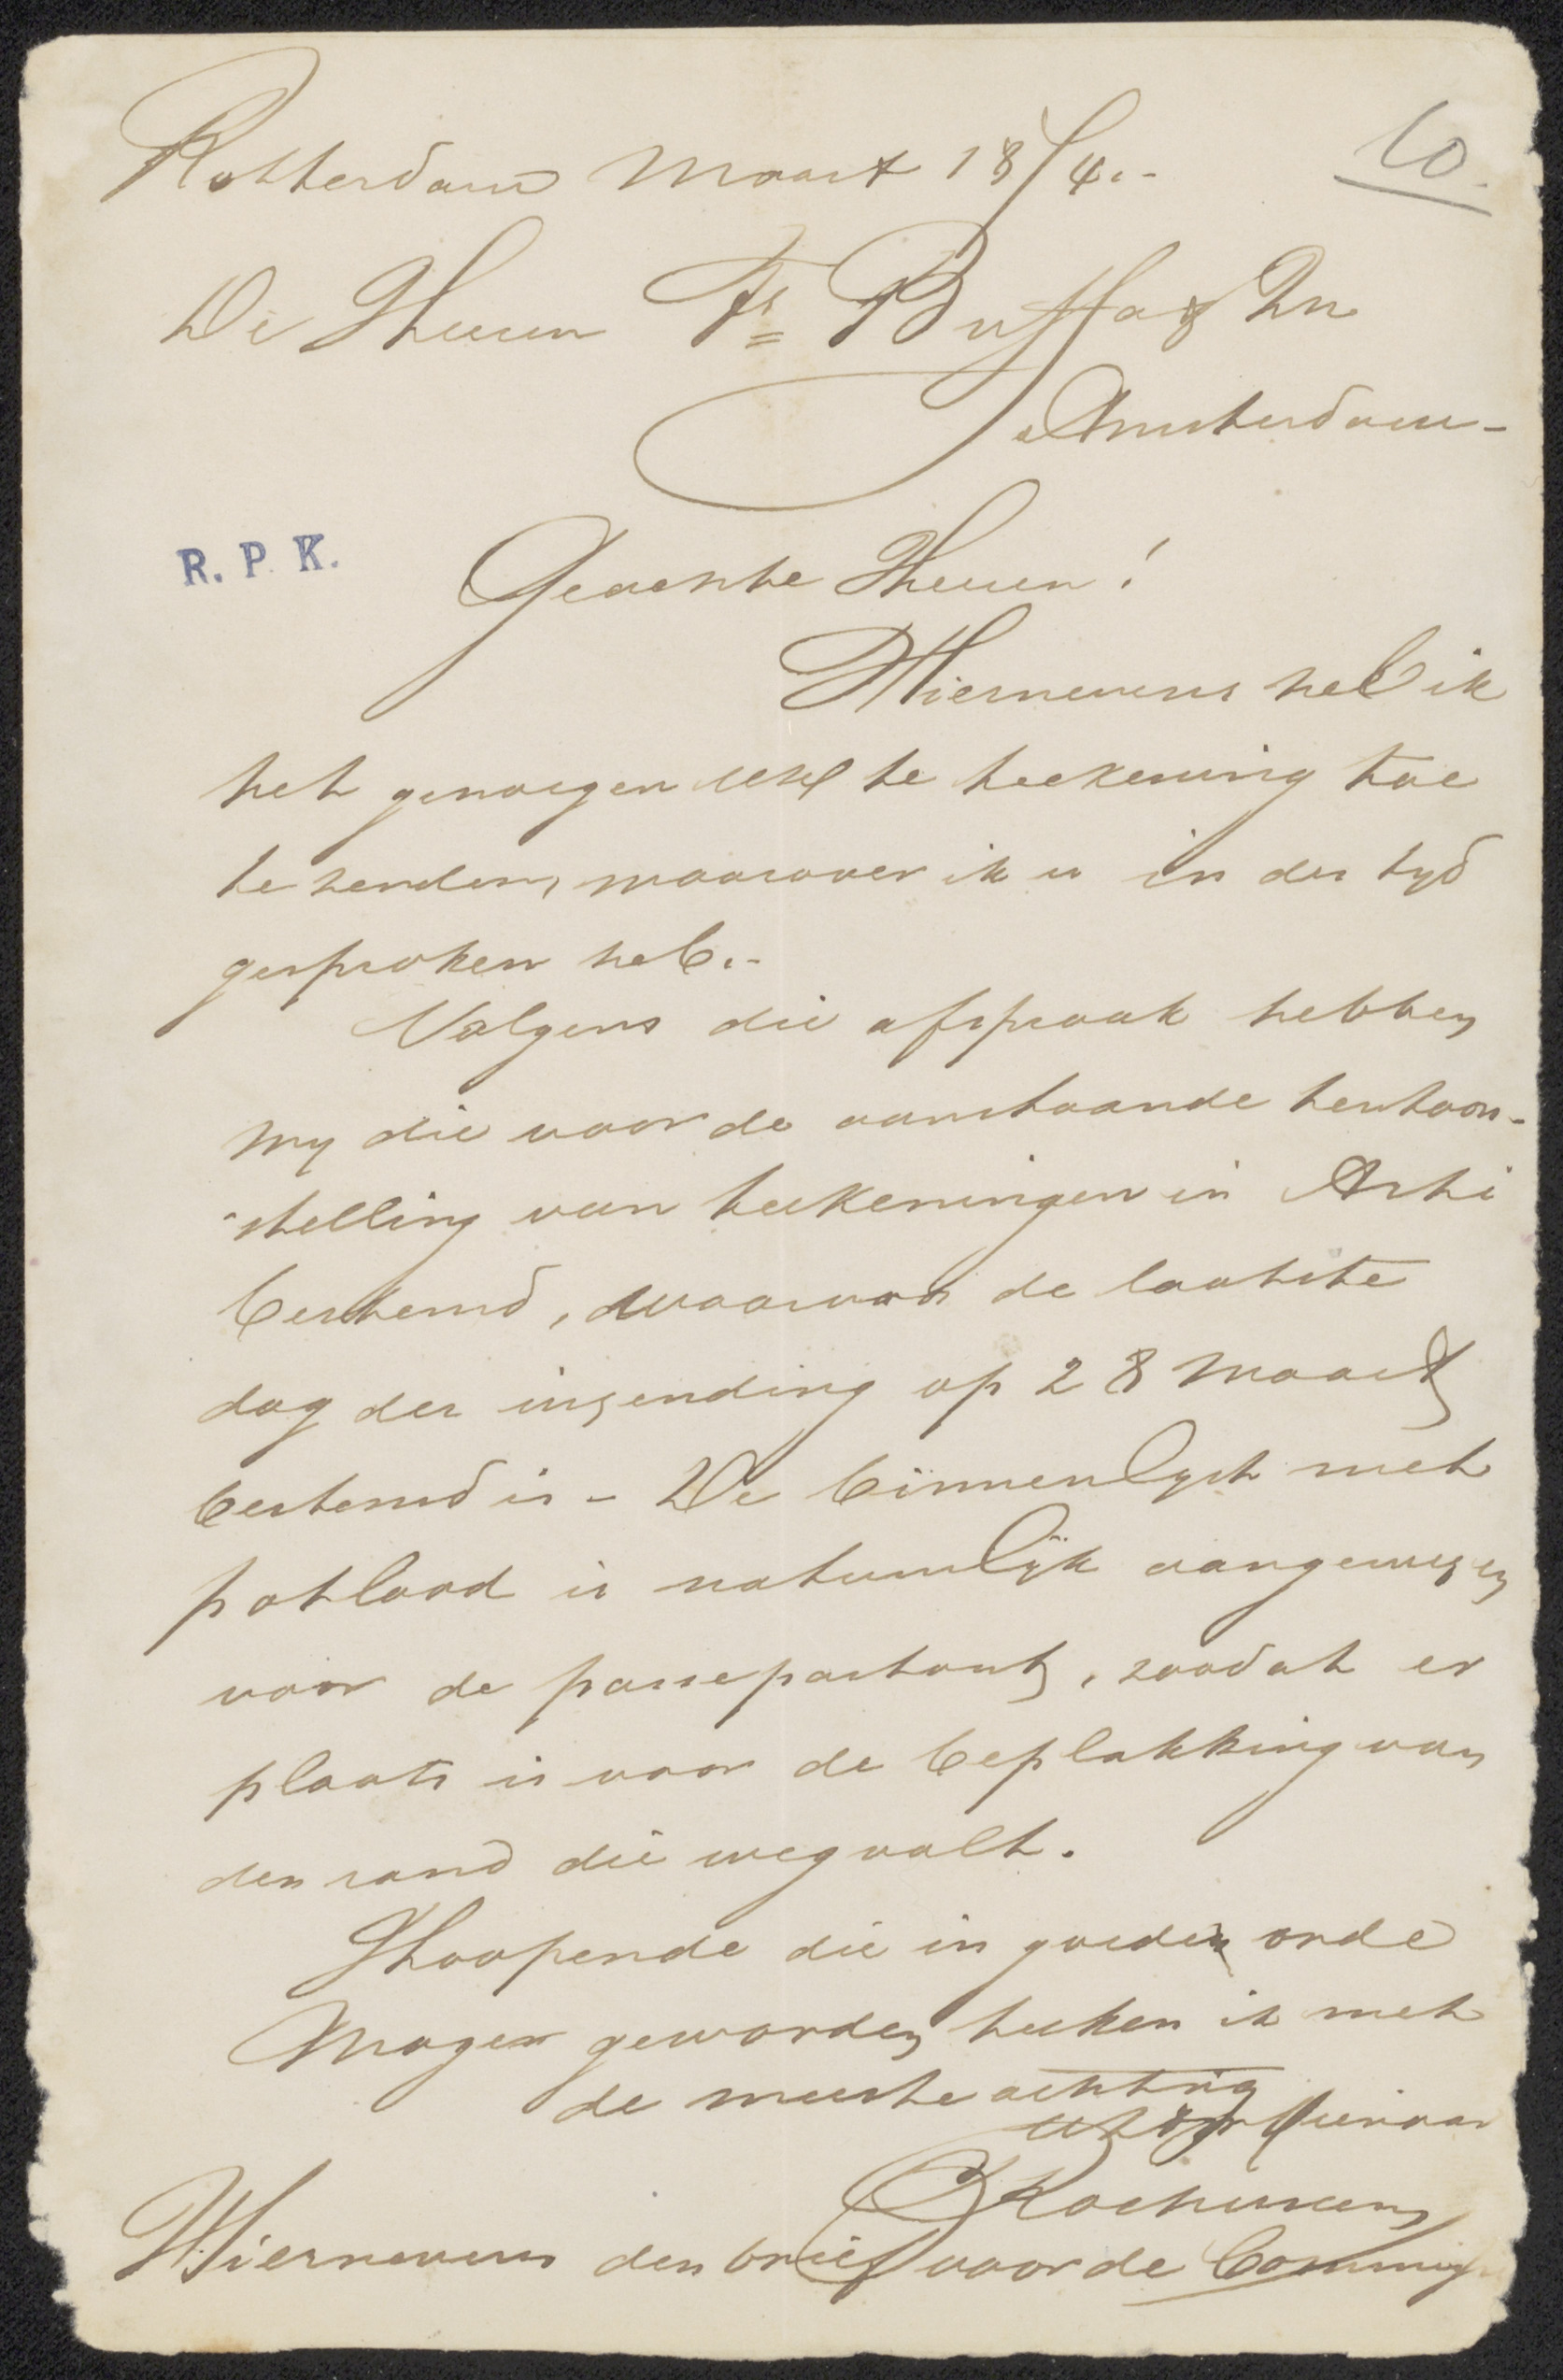 Rotterdam Maart 18/4.-
10.
De Heeren Fs Buffa & Zn
Amsterdam-
R. P. K.
Geachte Heeren!
Hiernevens heb ik
het genoegen UEd de teekening toe
te zenden, waarover ik u in der tyd
gesproken heb.-
Volgens die afspraak hebben
wy die voor de aanstaande tentoon-
stelling van teekeningen in Arti
bestemd, waarvan de laatste
dag der inzending op 28 Maart
bestemd is - De binnenlyst met
potlood is natuurlijk aangewezen
voor de passepartout, zoodat er
plaats is voor de beplakking van
den rand die wegvalt.
Hoopende die in goede orde
Moge geworden, teeken ik met
de meeste achting
dienaar
Rochussen
Hiernevens den brief voor de Commiss